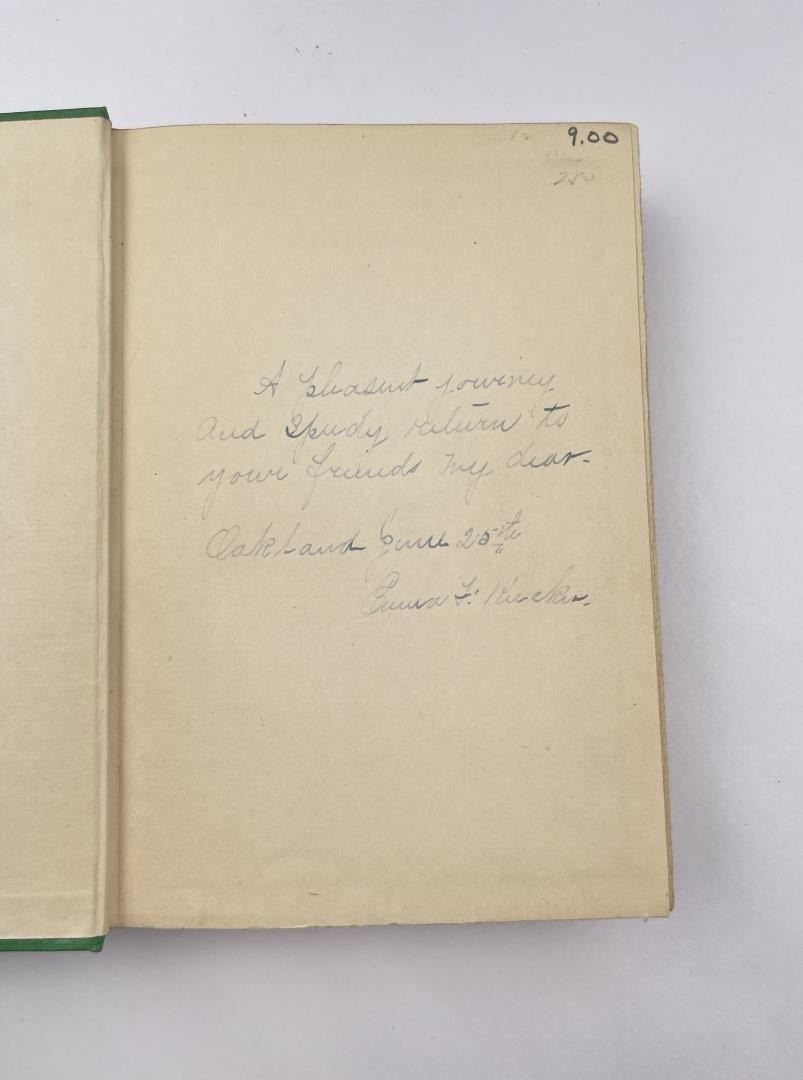 9.00
250
A pleasent journey
and speedy return to
your friends my dear-
Oakland June 25th
Emma F. Rucker.